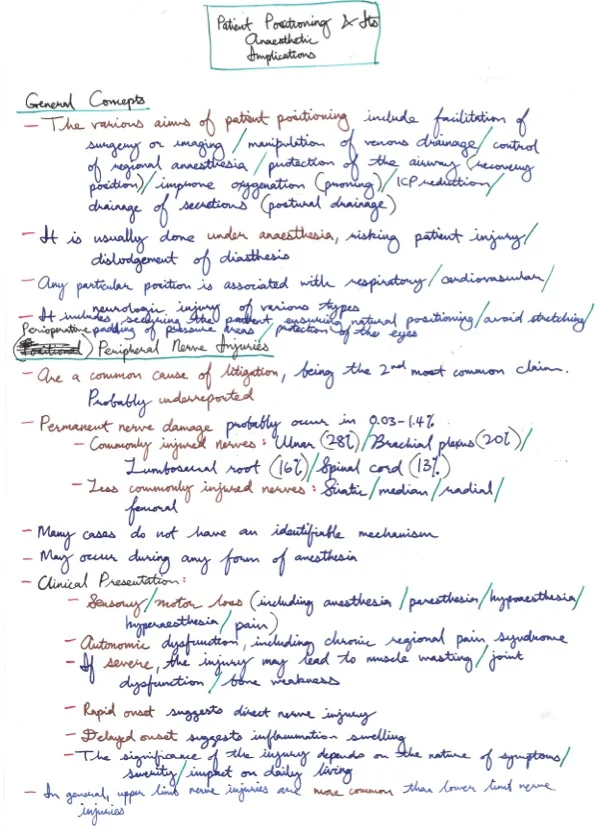 Patient Positioning & Its
Anaesthetic
Implications
General Concepts
- The various aims of patient positioning include facilitation of
surgery or imaging / manipulation of venous drainage / control
of regional anaesthesia / protection of the airway (recovery
position) / improve oxygenation (proning) / ICP reduction /
drainage of secretions (postural drainage)
- It is usually done under anaesthesia, risking patient injury /
dislodgement of diathesis
- Any particular position is associated with respiratory / cardiovascular /
neurologic injury of various types
- It includes securing the patient, ensuring natural positioning / avoid stretching /
padding of pressure areas / protection of the eyes
Perioperative
(Positional) Peripheral Nerve Injuries
- Are a common cause of litigation, being the 2nd most common claim.
Probably underreported
- Permanent nerve damage probably occur in 0.03-1.4%
- Commonly injured nerves: Ulnar (28%) / Brachial plexus (20%) /
Lumbosacral root (16%) / Spinal cord (13%)
- Less commonly injured nerves: Sciatic / median / radial /
femoral
- Many cases do not have an identifiable mechanism
- May occur during any form of anesthesia
- Clinical Presentation:
- Sensory / motor loss (including anesthesia / paresthesia / hypoaesthesia /
hyperaesthesia / pain)
- Autonomic dysfunction, including chronic regional pain syndrome
- If severe, the injury may lead to muscle wasting / joint
dysfunction / bone weakness
- Rapid onset suggests direct nerve injury
- Delayed onset suggests inflammation swelling
- The significance of the injury depends on the nature of symptoms /
severity / impact on daily living
- In general, upper limb nerve injuries are more common than lower limb nerve
injuries